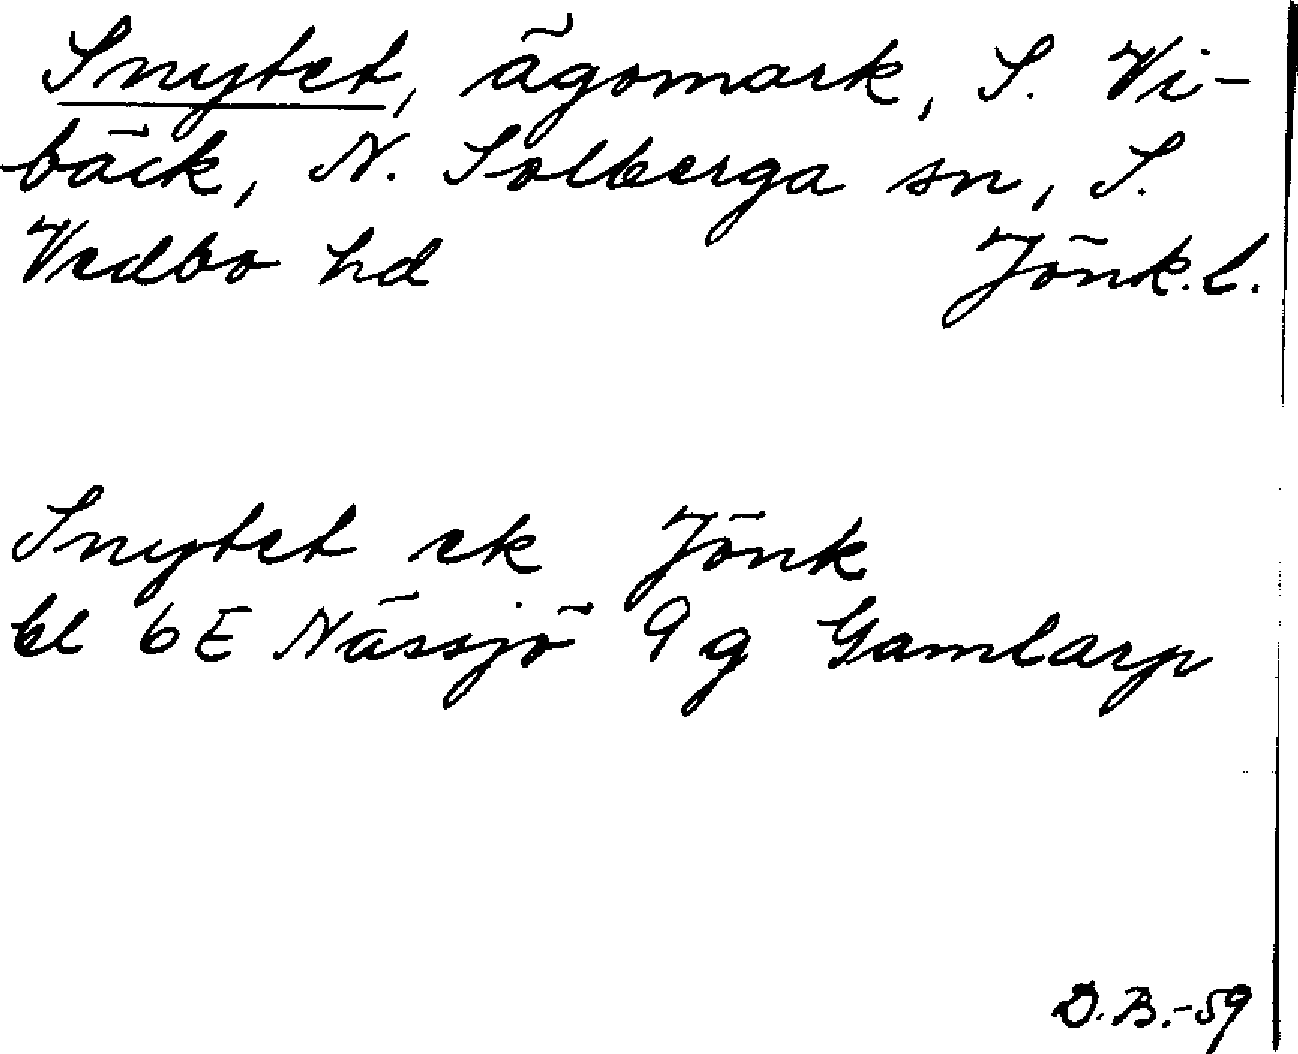 Snytet, ägomark, S. Vi-
bäck, N. Solberga sn, S.
Vedbo hd Jönk.l.
Snytet ek Jönk
bl 6E Nässjö 9g Gamlarp
D.B.-59